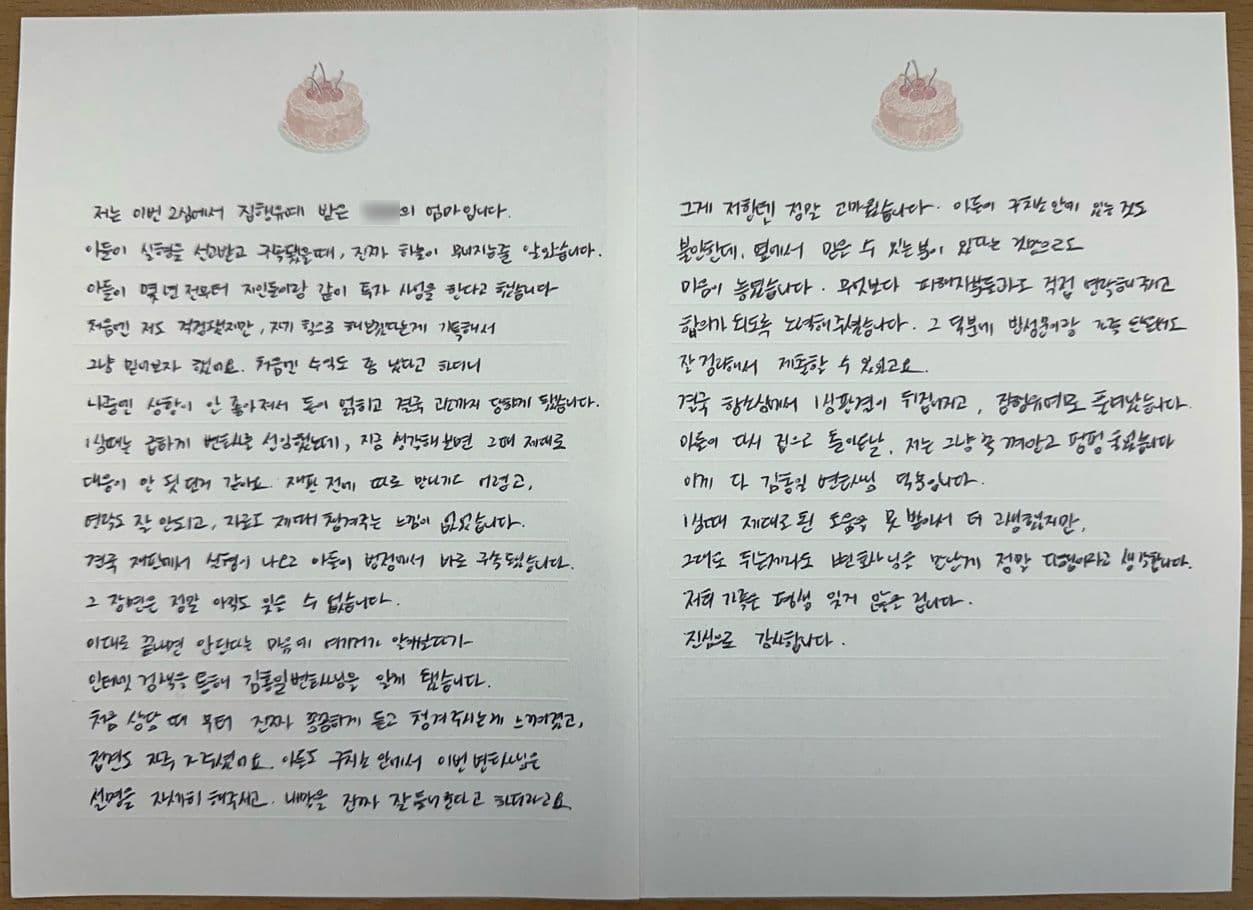 저는 이번 2심에서 집행유예 받은 의 엄마입니다.
아들이 실형을 선고받고 구속됐을때, 진짜 하늘이 무너지는줄 알았습니다.
아들이 몇 년 전부터 지인들이랑 같이 투자 사업을 한다고 했습니다
처음엔 저도 걱정됐지만, 자기 힘으로 해보겠다는게 기특해서
그냥 믿어보자 했어요. 처음엔 수익도 좀 났다고 하더니
나중엔 상황이 안 좋아져서 돈이 얽히고 결국 고소까지 당하게 됐습니다.
1심때는 급하게 변호사를 선임했는데, 지금 생각해보면 그때 제대로
대응이 안 됐던거 같아요. 재판 전에 따로 만나기도 어렵고,
연락도 잘 안되고, 자료도 제대로 챙겨주는 느낌이 없었습니다.
결국 재판에서 실형이 나오고 아들이 법정에서 바로 구속됐습니다.
그 장면은 정말 아직도 잊을 수 없습니다.
이대로 끝나면 안된다는 마음에 여기저기 알아보다가
인터넷 검색을 통해 김홍일변호사님을 알게 됐습니다.
처음 상담 때 부터 진짜 꼼꼼하게 듣고 챙겨주시는게 느껴졌고,
접견도 자주 가주셨어요. 아들도 구치소 안에서 이번 변호사님은
설명을 자세히 해주시고. 내막을 진짜 잘 들어준다고 하더라고요.
그게 저한텐 정말 고마웠습니다. 아들이 구치소 안에 있는 것도
불안한데, 옆에서 믿을 수 있는분이 있다는 것만으로도
마음이 놓였습니다. 무엇보다 피해자분들과도 직접 연락해주시고
합의가 되도록 노력해주셨습니다. 그 덕분에 반성문이랑 가족 탄원서도
잘 정리해서 제출할 수 있었고요.
결국 항소심에서 1심판결이 뒤집어지고, 집행유예로 풀려났습니다.
아들이 다시 집으로 돌아온날, 저는 그냥 꼭 껴안고 펑펑 울었습니다
이게 다 김홍일 변호사님 덕분입니다.
1심때 제대로 된 도움을 못 받아서 더 고생했지만,
그래도 두번째라도 변호사님을 만난게 정말 다행이라고 생각합니다.
저희 가족은 평생 잊지 않을 겁니다.
진심으로 감사합니다.